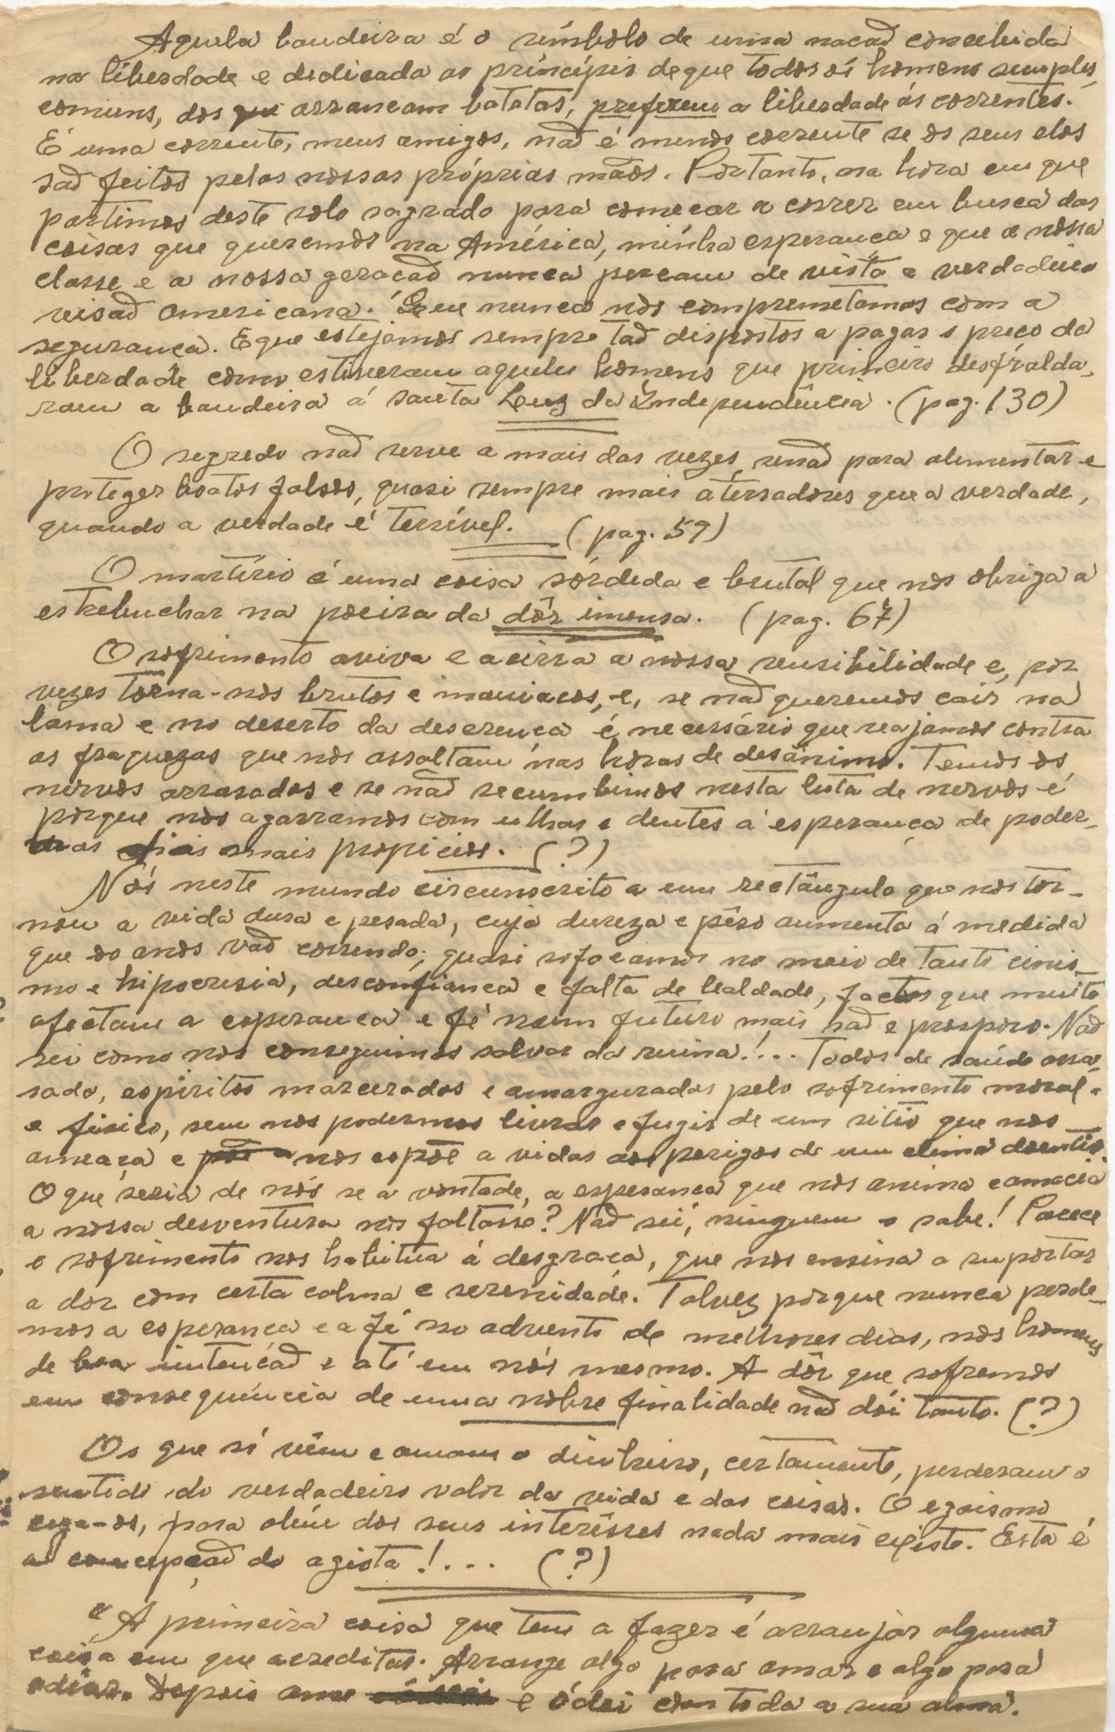 Aquela bandeira é o símbolo de uma nação concebida
na liberdade e dedicada ao princípio de que todos os homens simples,
comuns, dos que arrancam batatas, preferem a liberdade ás correntes.
E uma corrente, meus amigos, não é menos corrente se os seus elos
são feitos pelas nossas próprias mãos. Portanto, na hora em que
partimos deste solo sagrado para começar a correr em busca das
coisas que queremos na América, minha esperança é que a nossa
classe e a nossa geração nunca percam de vista a verdadeira
visão americana. Que nunca nos comprometamos com a
segurança. E que estejamos sempre tão dispostos a pagar o preço da
liberdade como estiveram aqueles homens que primeiro desfralda-
ram a bandeira á santa Luz da Independência. (pag. 130)
O segredo não serve a mais das vezes, senão para alimentar e
proteger boatos falsos, quasi sempre mais aterradores que a verdade,
quando a verdade é terrível. (pag. 59)
O martírio é uma coisa sórdida e brutal que nos obriga a
estrebuchar na poeira da dôr imensa. (pag. 67)
O sofrimento aviva e acirra a nossa sensibilidade e, por
vezes torna-nos brutos e maníacos, e, se não queremos cair na
lama e no deserto da descrença é necessário que reajamos contra
as fraquezas que nos assaltam nas horas de desânimo. Temos os
nervos arrasados e se não sucumbimos nesta luta de nervos é
porque nos agarramos com unhas e dentes á esperança de poder-
mos dias mais propícios. (?)
Nós neste mundo circunscrito a um rectângulo que nos tor-
nou a vida dura e pesada, cuja dureza e pêso aumenta á medida
que os anos vão correndo; quasi sofocamos no meio de tanto cinis-
mo e hipocrisia, desconfiança e falta de lealdade, factos que muito
afectam a esperança e fé num futuro mais são e prospero. Não
sei como nos conseguimos salvar da ruina!... Todos de saúde arra-
sado, espiritos macerados e amargurados pelo sofrimento moral
e fisico, sem nos podermos livrar e fugir de um sitio que nos
ameaça e nos expõe a vidas aos perigos de um clima doentio.
O que seria de nós se a vontade, a esperança que nos anima e amacia
a nossa desventura nos faltasse? Não sei, ninguem o sabe! Parece
o sofrimento nos habitúa á desgraça, que nos ensina a suportar
a dor com certa calma e serenidade. Talvez porque nunca perde-
mos a esperança e a fé no advento de melhores dias, nos homens
de boa intenção e até em nós mesmo. A dôr que sofremos
em consequência de uma nobre finalidade não dói tanto. (?)
Os que só vêm e amam o dinheiro, certamente, perderam o
sentido do verdadeiro valor da vida e das coisas. O egoismo
cega-os, para além dos seus interêsses nada mais existe. Esta é
a concepção do agiota!... (?)
"A primeira coisa que tem a fazer é arranjar alguma
coisa em que acreditar. Arranje algo para amar e algo para
odiar. Depois ame e ódei com toda a sua alma.